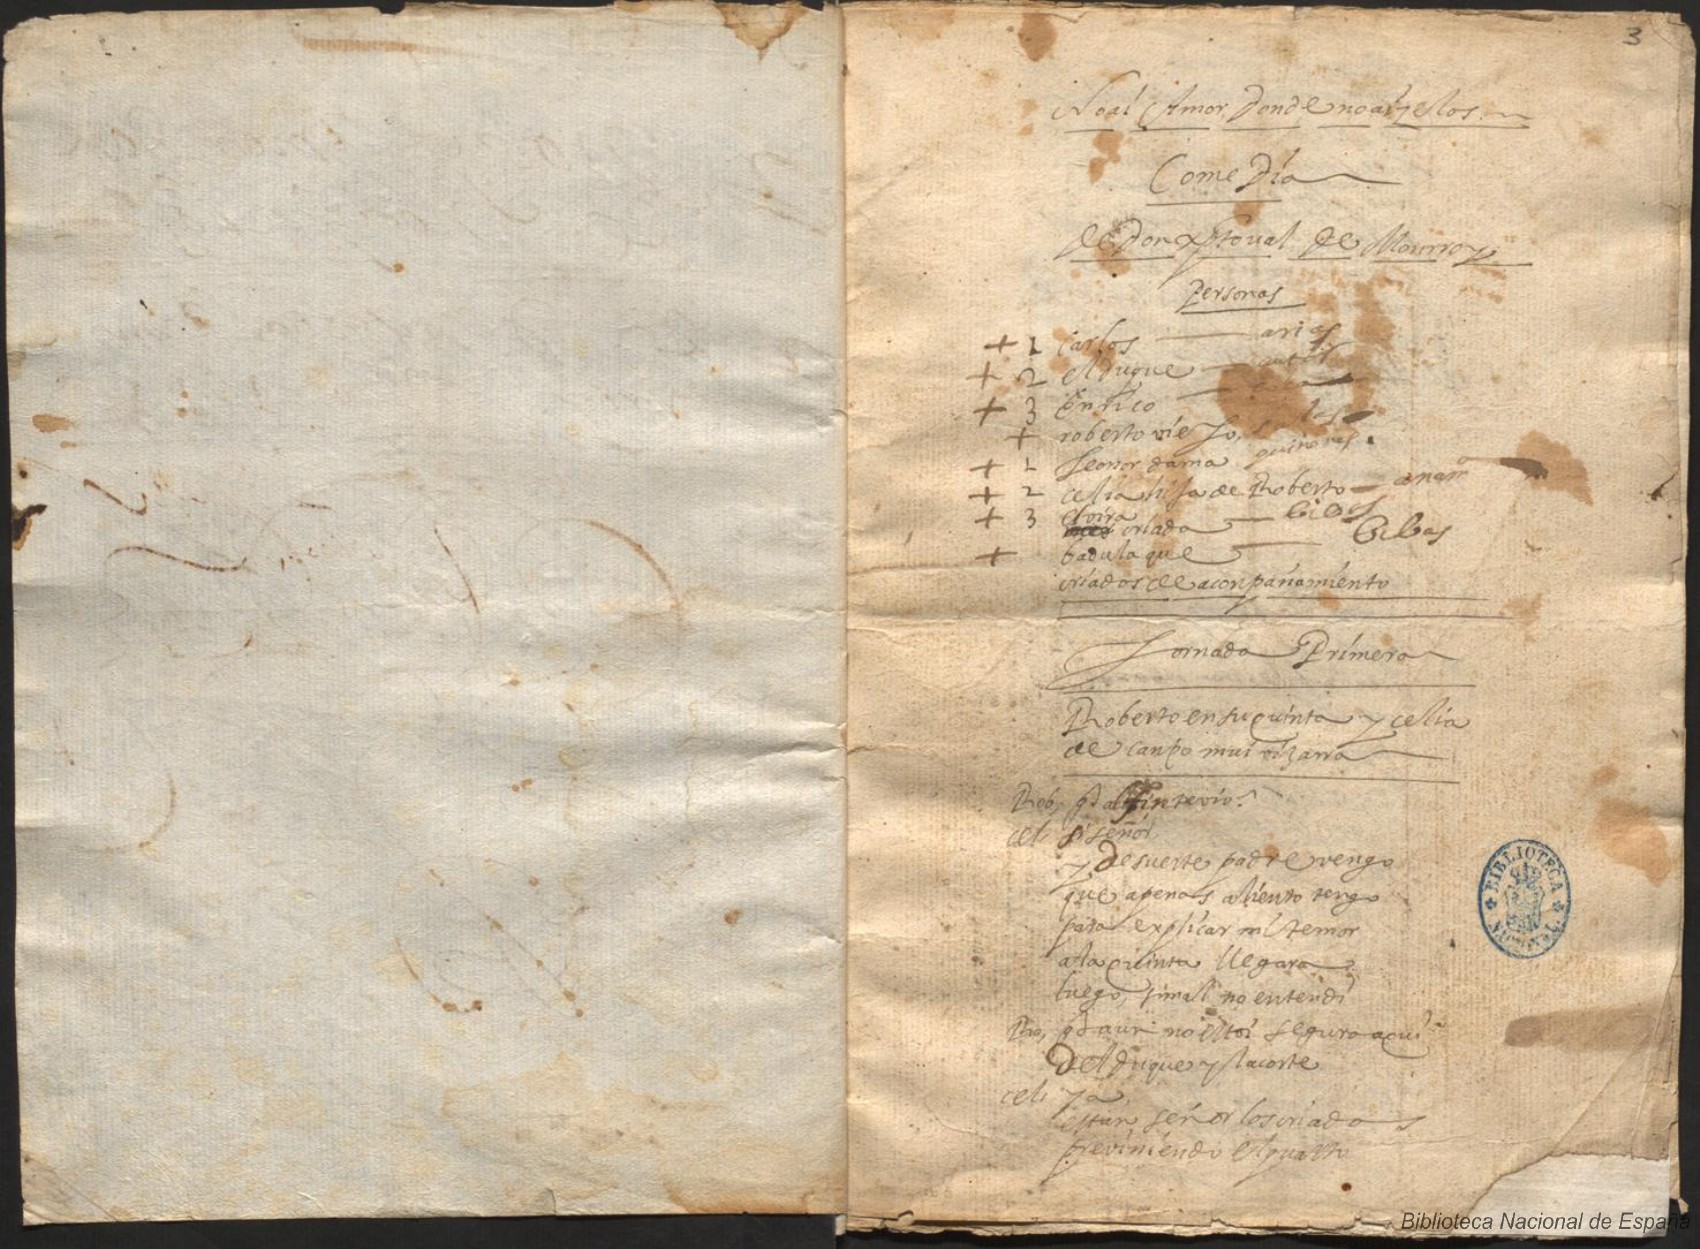 3
No ai Amor donde no ai zelos
Comedia
de Don xptoual de Monrroy
Personas
+ 1 Carlos — arias
+ 2 el duque — autor
+ 3 Enrico
+ roberto viejo,
+ 1 Leonor dama quiñones
+ 2 celia hija de Roberto —
+ 3 eluira
criada — bibas bibas
+ badulaque
criados de aconpañamiento
Jornada Primera
Roberto en su quinta y celia
de canpo mui vizarra
Rob,
cel. si señor
y de suerte padre vengo
que apenas aliento tengo
para explicar mi temor
a la quinta llegara
luego, si mal no entendi
Ro, q̃ aun no estoi seguro aqui
del duque y la corte
cel. ya
estan señor los criados
previniendo el quarto
BIBLIOTECA NACIONAL
Biblioteca Nacional de España